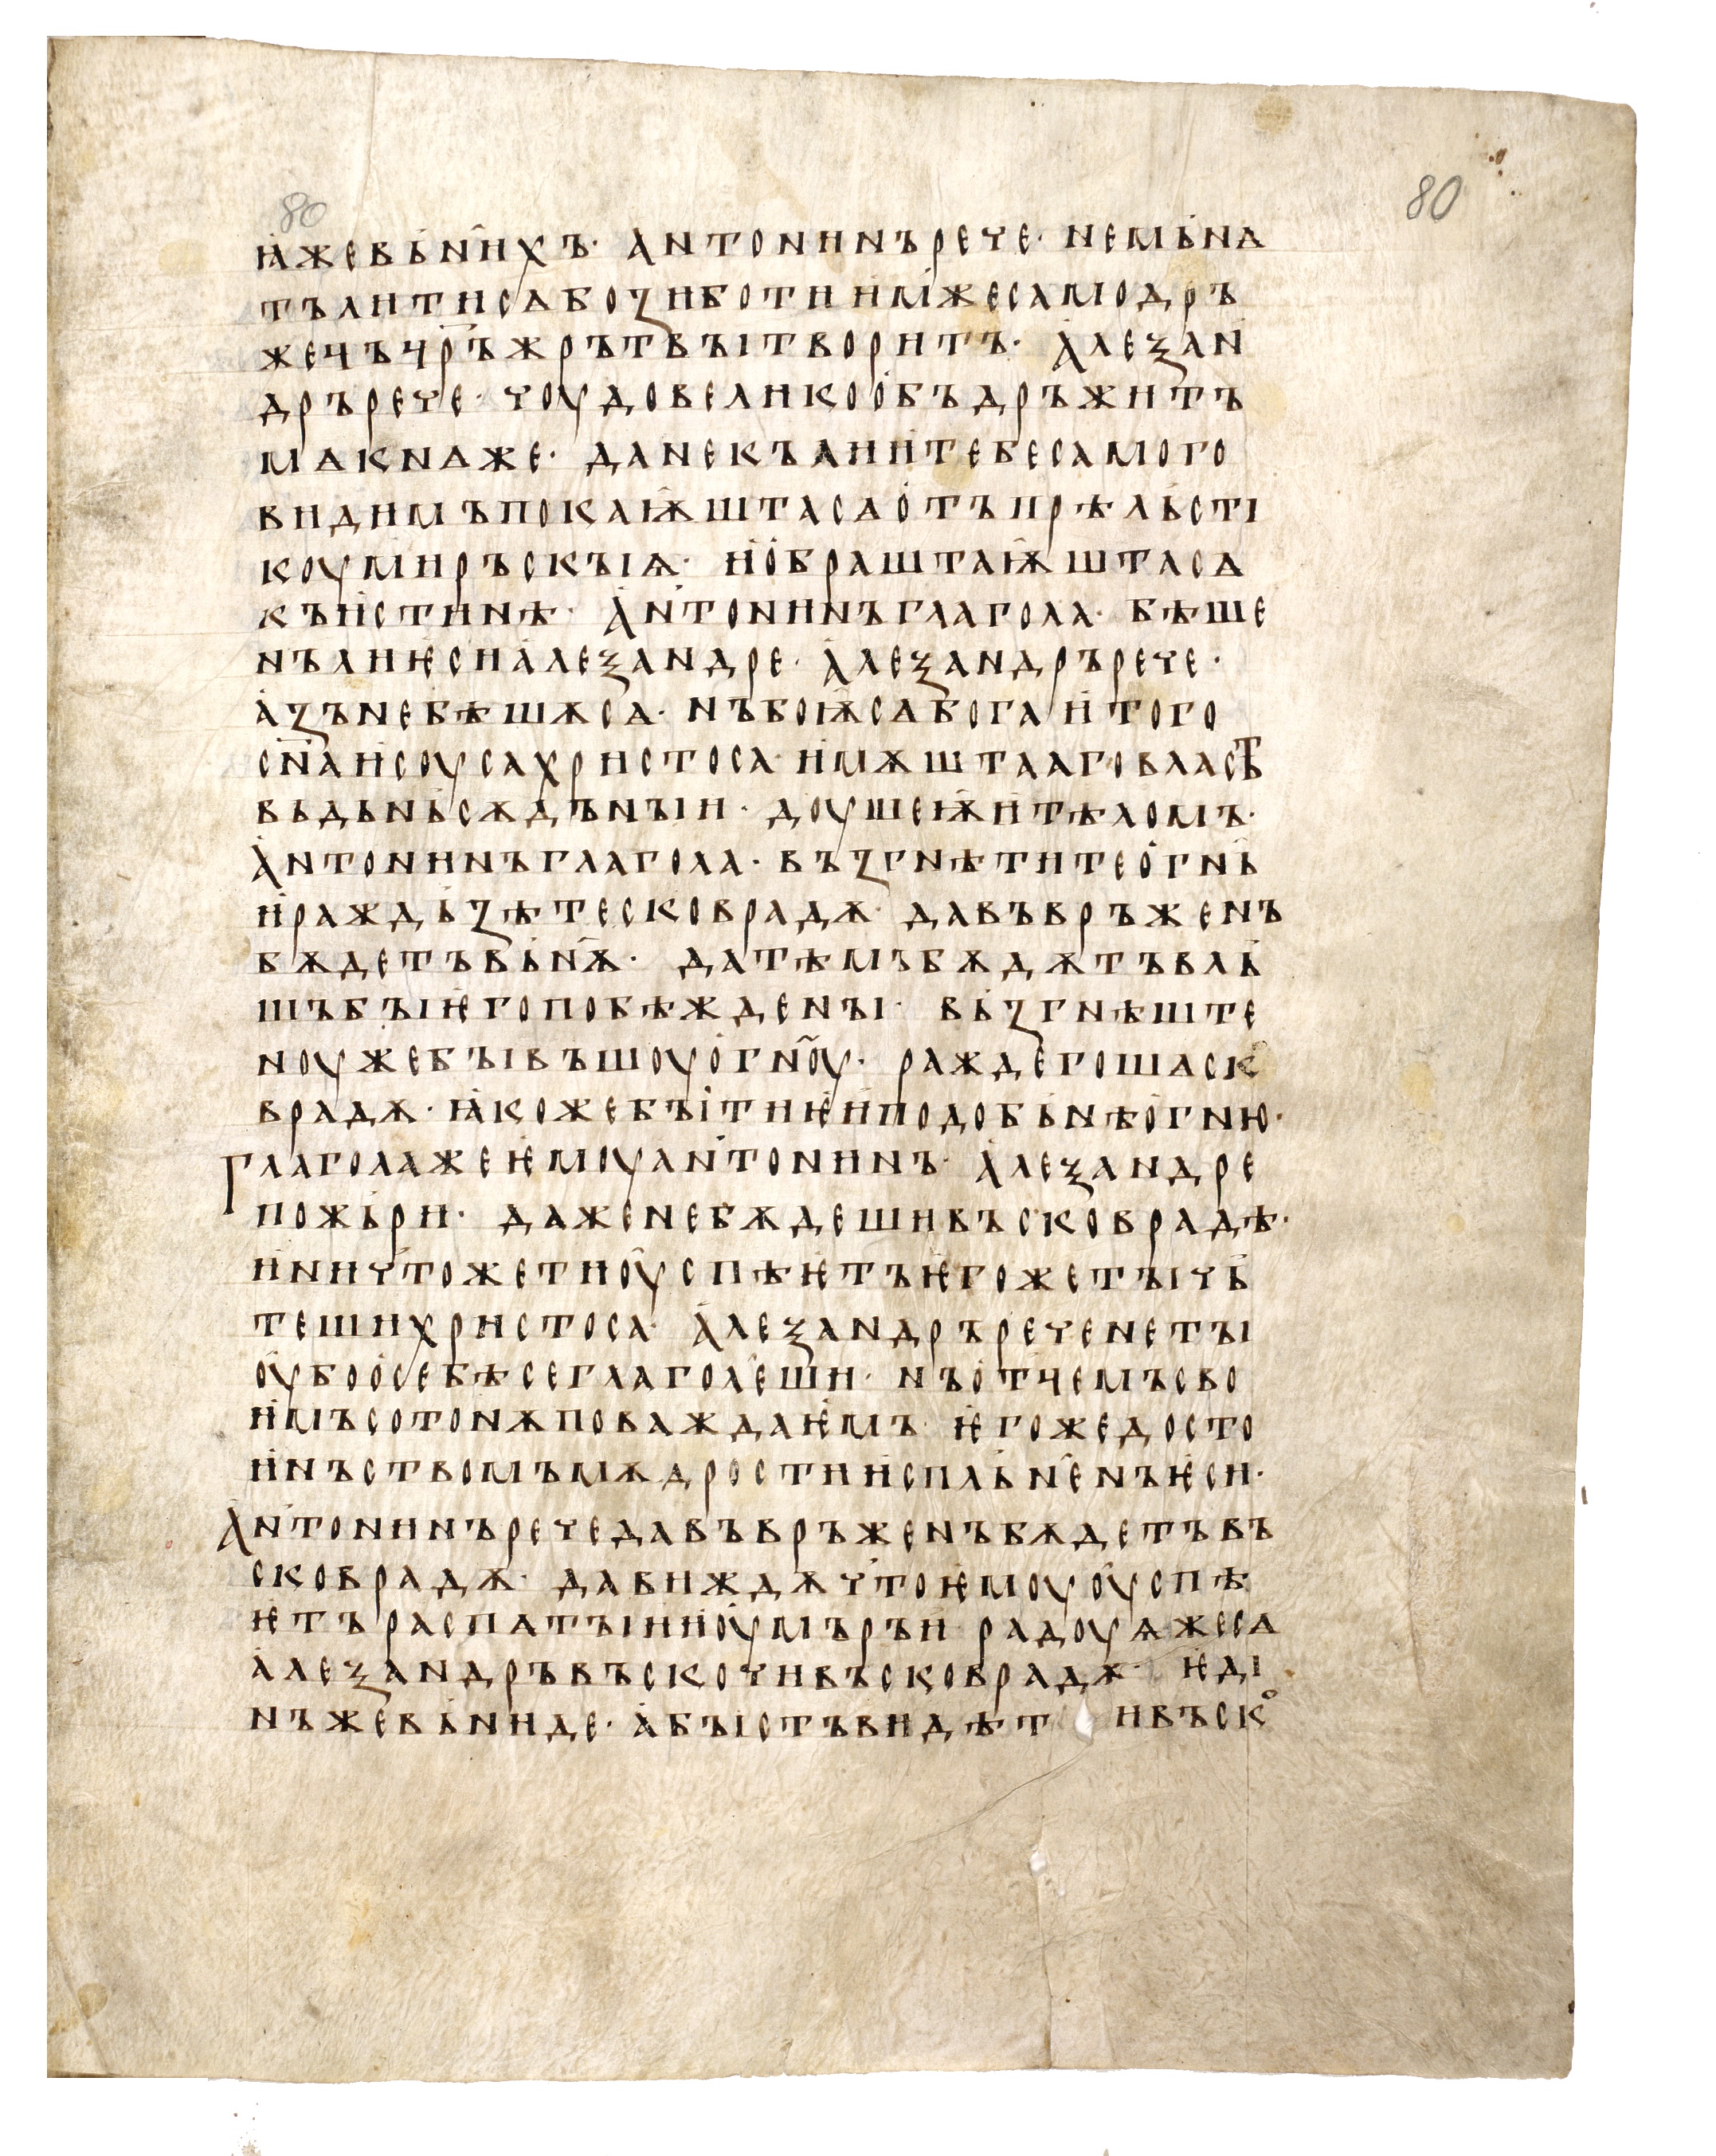 80
80
ꙗжевьнихъ· антонинърече· немьнѧ
тълитисѧбозиботиимꙗжесамодръ
жечъчр҃ъжрътвꙑтворитъ· алеѯан
дрърече· чоудовеликообъдръжитъ
мѧкнѧже· данекъѧиитебесамого
видимъпокаѭштасѧотъпрѣльсті
коумирьскыѩ· иобраштаѭштасѧ
къистинѣ· антонинъглагола· бѣше
нълиѥсиалеѯандре· алеѯандрърече·
азънебѣшѫсѧ· нъбоѭсѧбогаитого
сн҃аисоусахристоса· имѫштааговласть
вьдьньсѫдьныи· доушеѭитѣломъ·
антонинъглагола· възгнѣтитеогнь
иражьдьзѣтесковрадѫ· давъврьженъ
бѫдетъвьнѫ· датѣмьбѫдѫтъвль
шьбыѥгопобѣждены· вьзгнѣште
ноужебывъшоуогн҃оу· раждегошаск
врадѫ· ꙗкожебытиѥиподобьнѣогню·
глаголажеѥмоуантонинъ· алеѯандре
пожьри· даженебѫдешивъсковрадѣ·
иничтожетиоуспѣѥтъѥгожетычь
тешихристоса· алеѯандръреченеты
оубоосебѣсеглаголеши· нъотчемъсво
имъсотонѫповаждаѥмъ· ѥгожедосто
инъствомъмѫдростииспльненъѥси·
антонинъречедавъврьженъбѫдетъвъ
сковрадѫ· давиждѫчтоѥмоуоуспѣ
ѥтъраспѧтыииоумърыи· радоуѩжесѧ
алеѯандръвъскочивъсковрадѫ· ѥді
нъжевьниде· абыствидѣт ивъскº